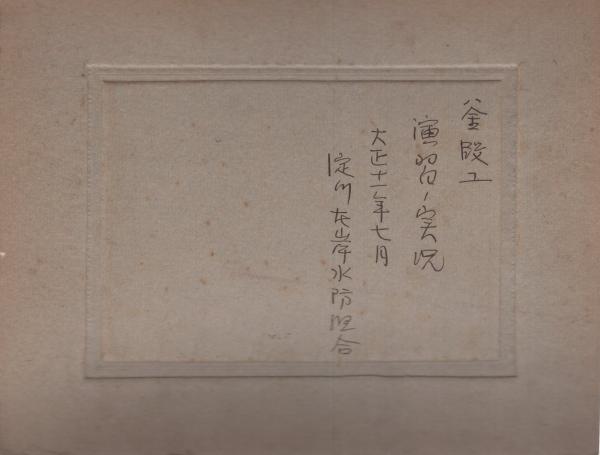 釜段工
演習ノ実况
大正十一年七月
淀川左岸水防組合